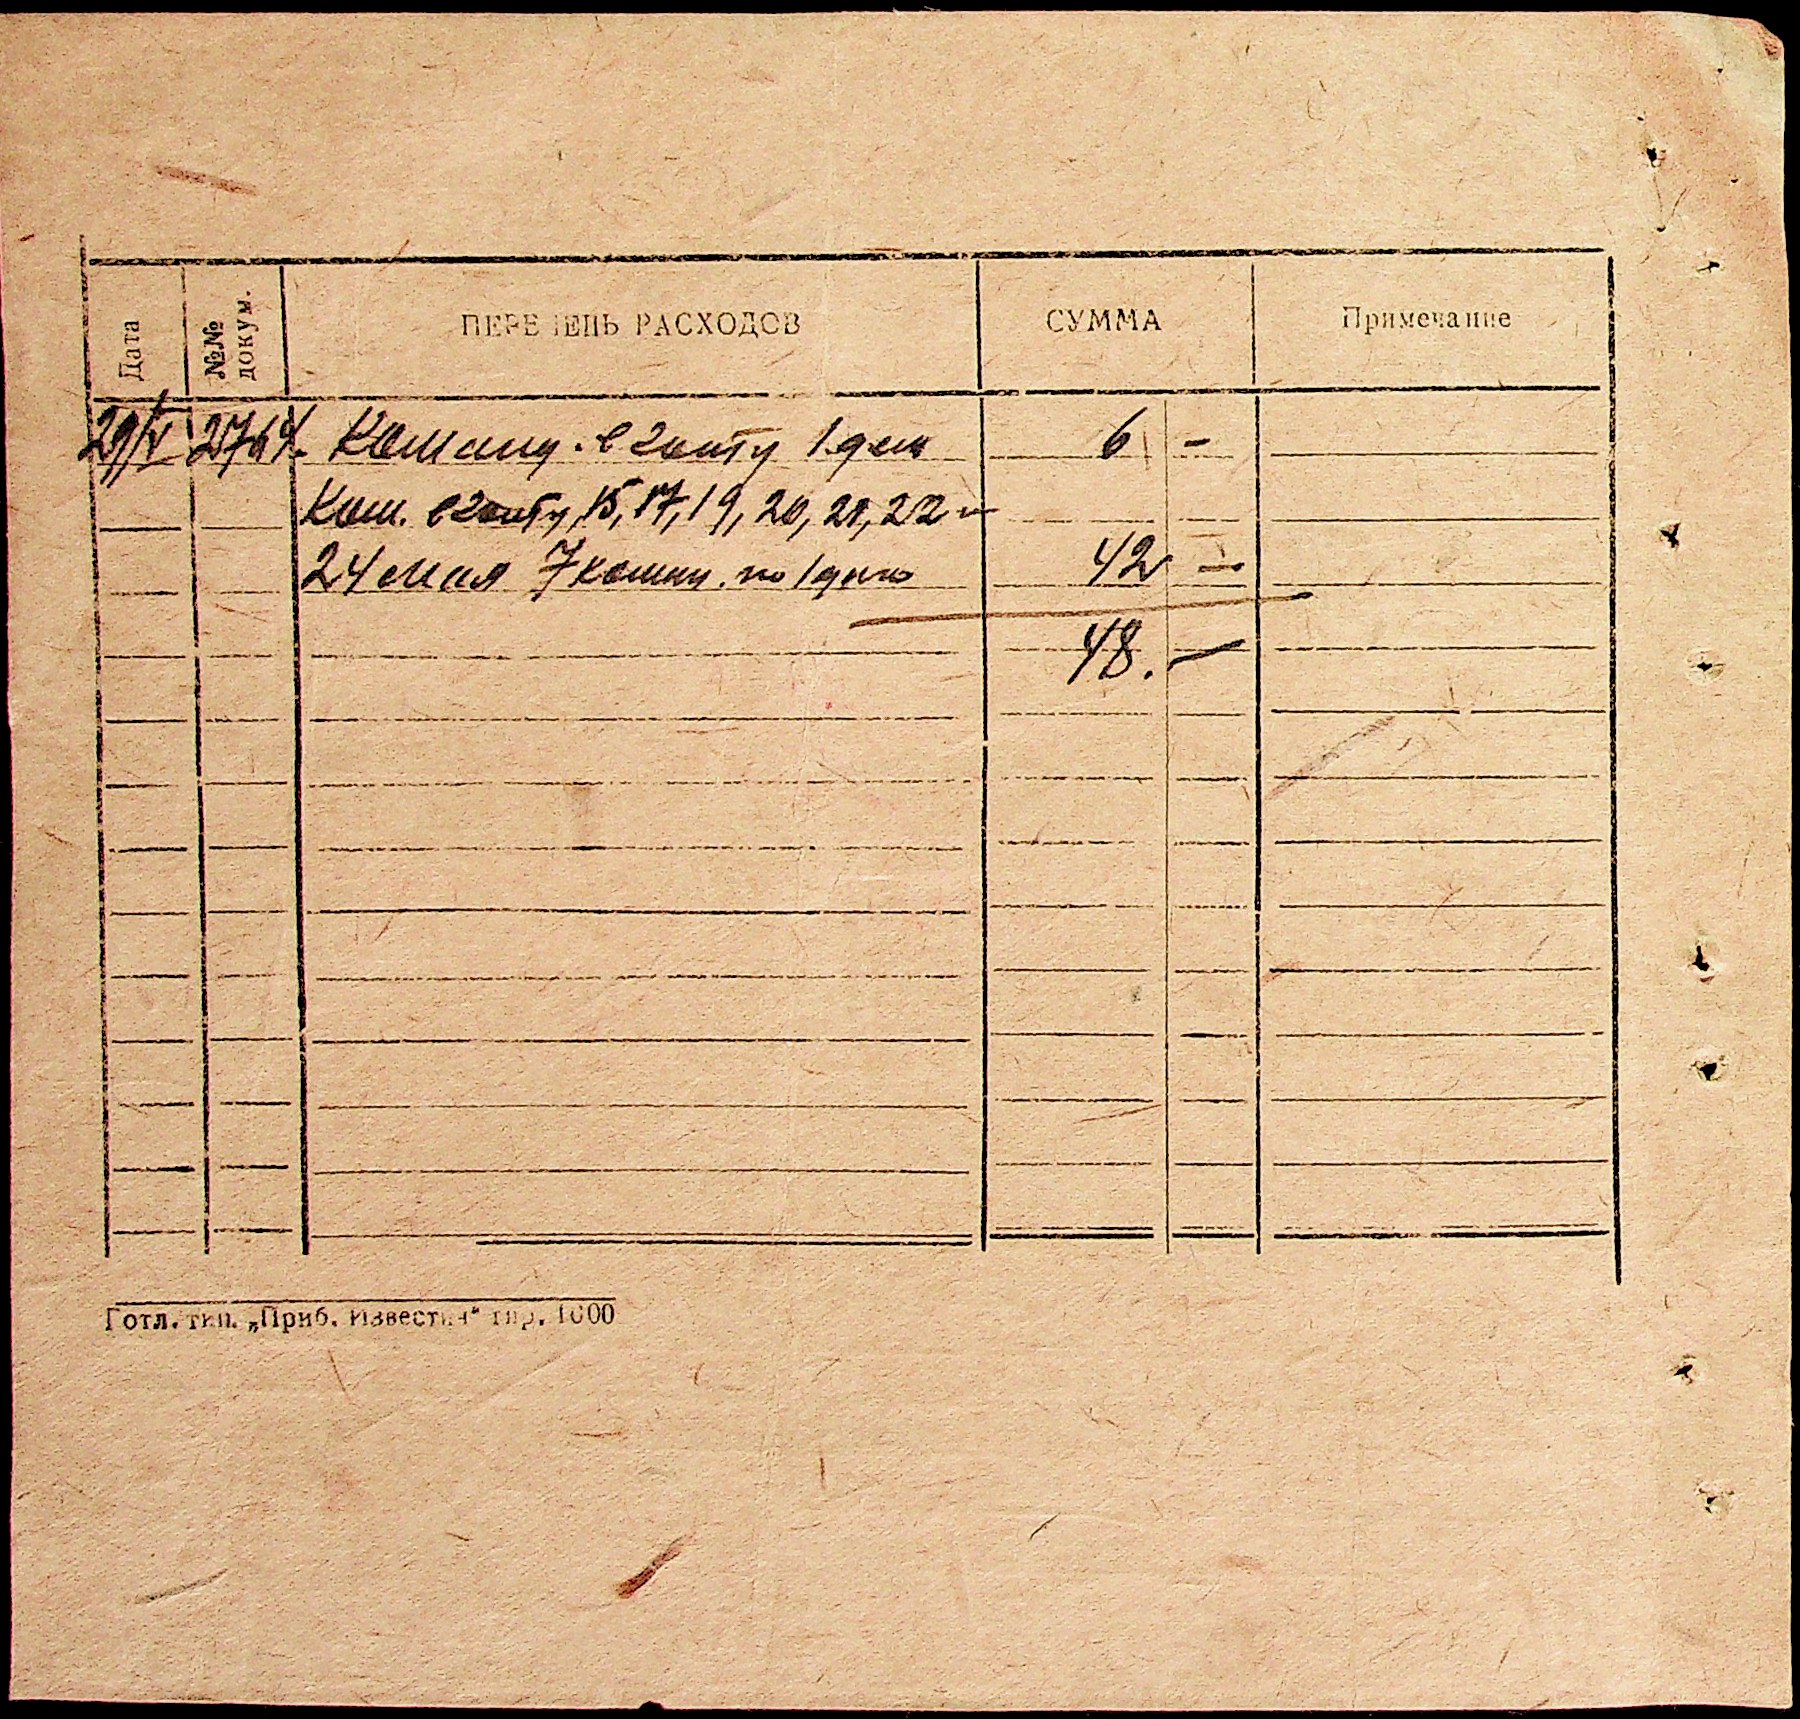 Дата №№ докум. ПЕРЕЧЕНЬ РАСХОДОВ СУММА Примечание
29/V 2764. Команд. в хонту 1 ден 6 –
Ком. в хонту, 15, 17, 19, 20, 21, 22 и
24 мая 7 команд. по 1 дню 42 –
48. –
Готл. тип. „Приб. Известия“ тир. 1000